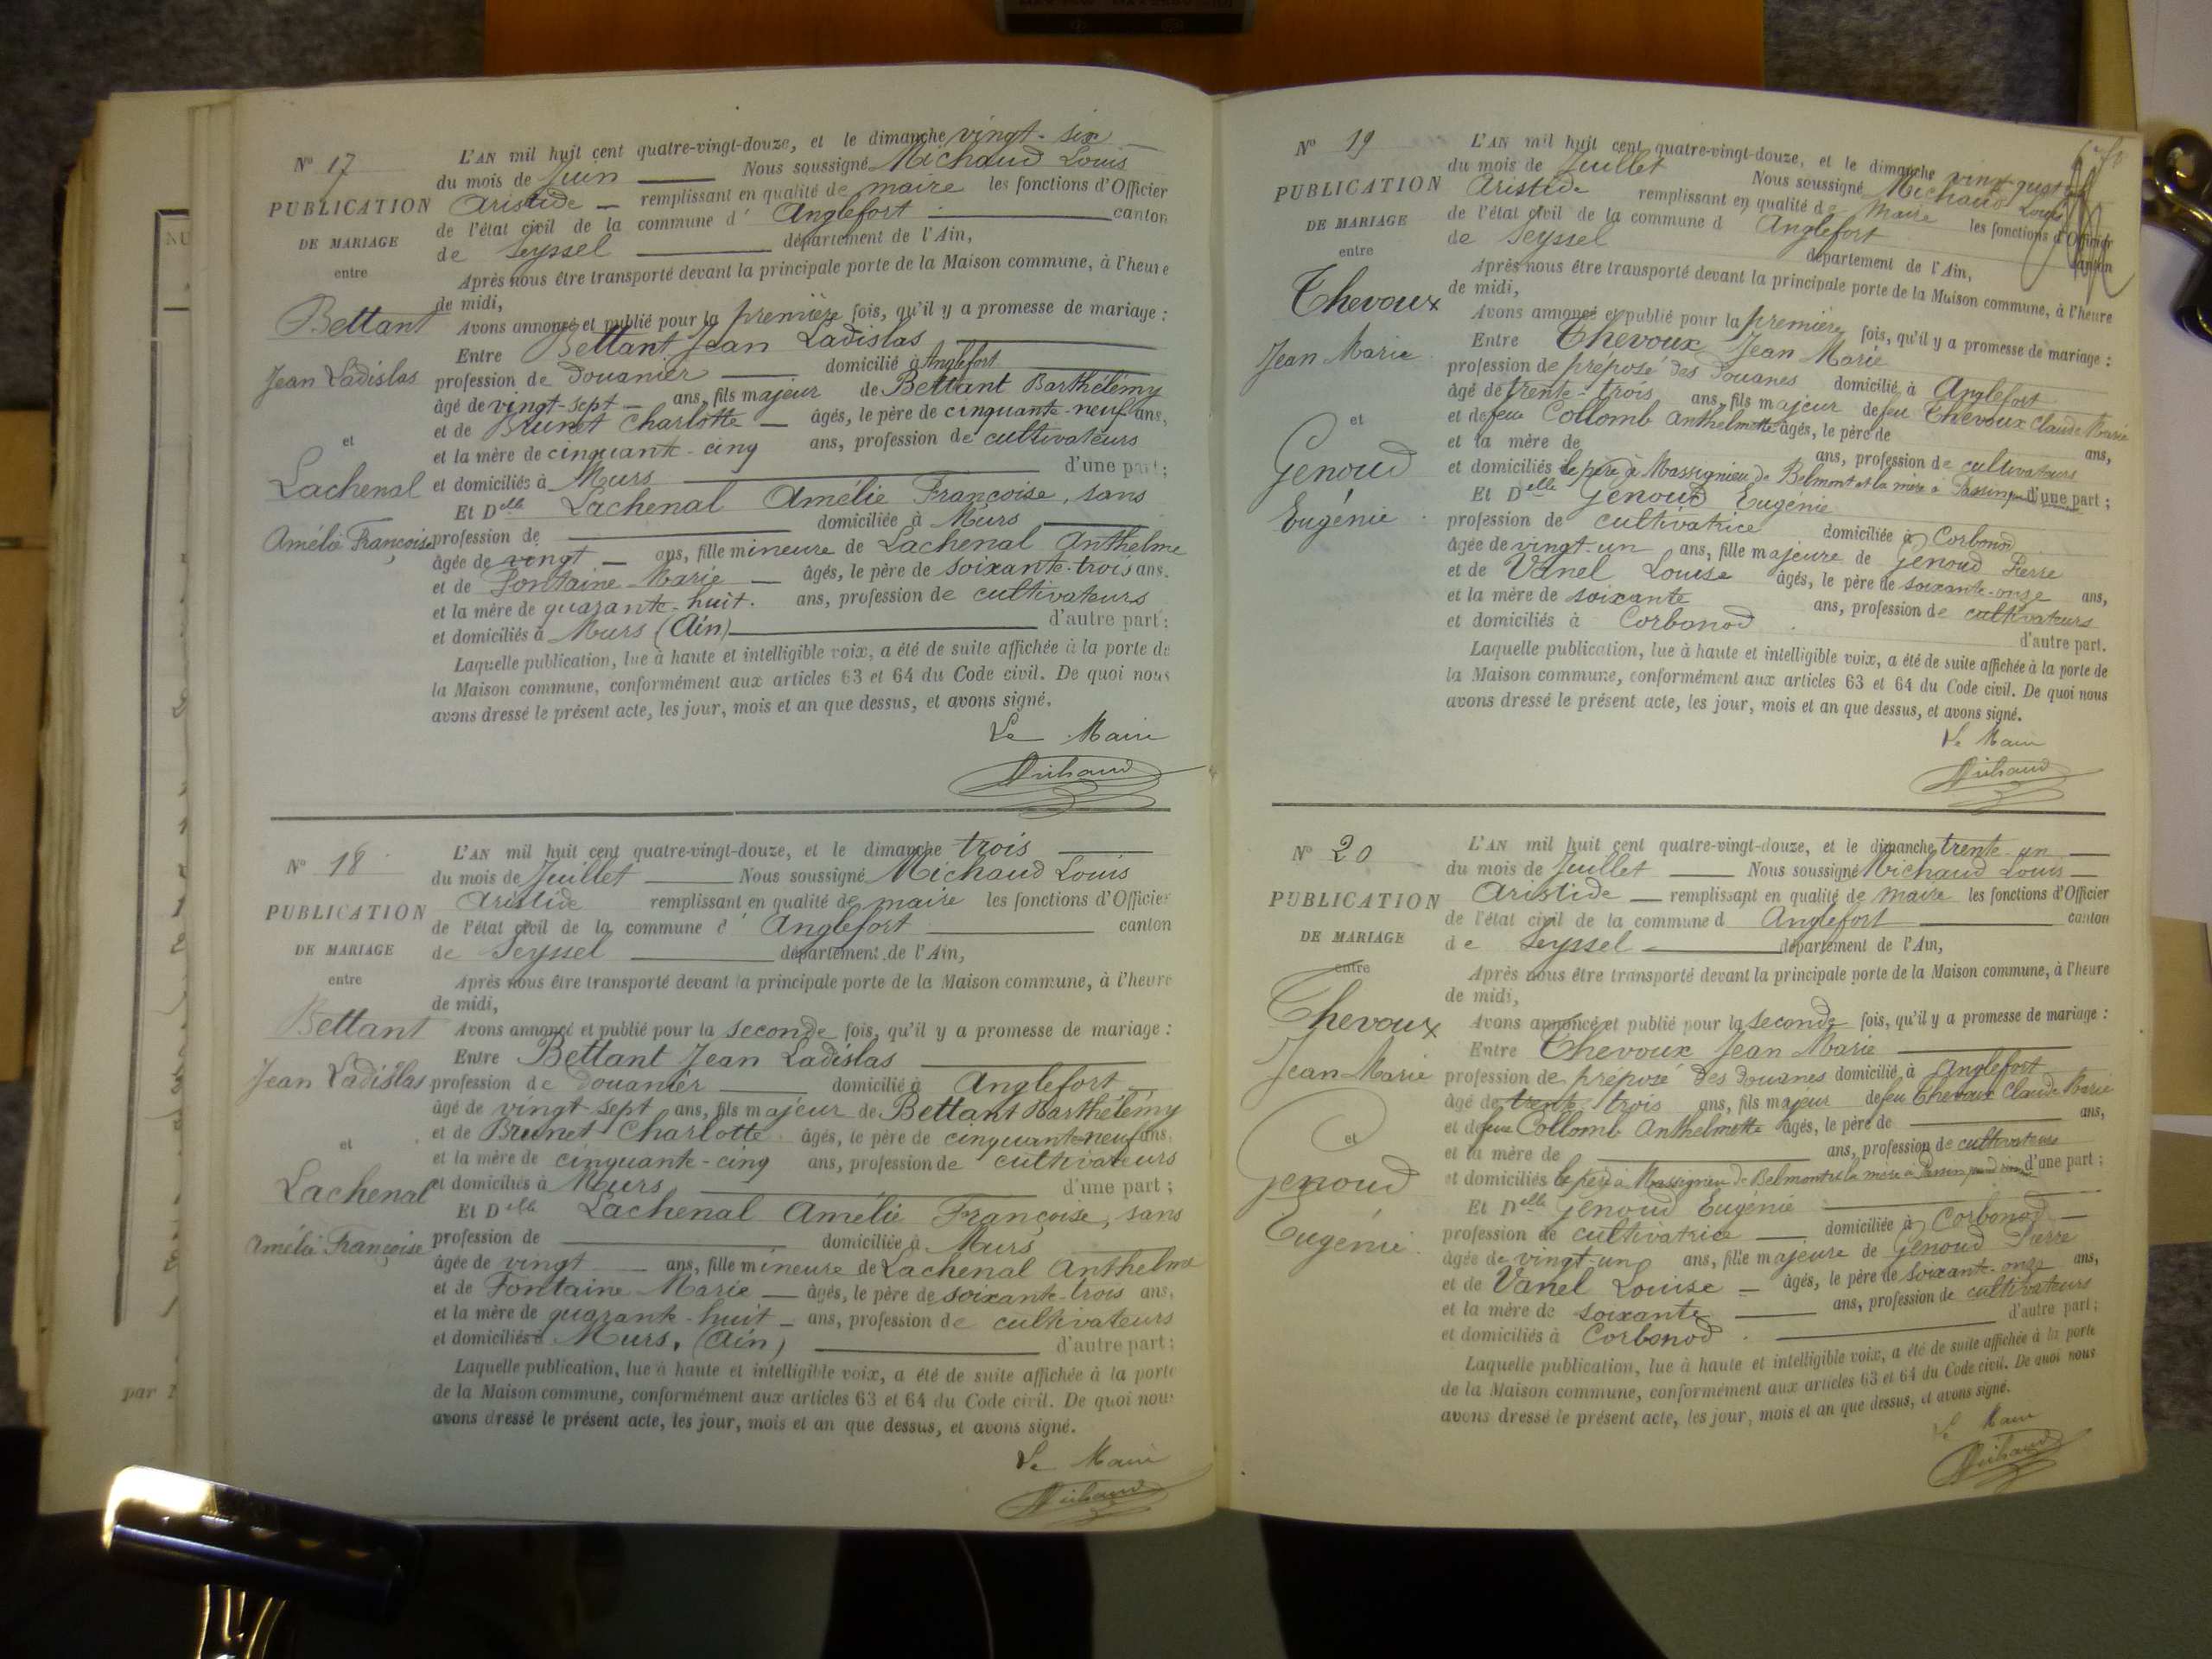 N° 17
PUBLICATION
DE MARIAGE
entre
Bettant
Jean Ladislas
et
Lachenal
Amélie Françoise
L'AN mil huit cent quatre-vingt-douze, et le dimanche vingt-six
du mois de Juin Nous soussigné Michaud Louis
Aristide remplissant en qualité de maire les fonctions d'Officier
de l'état civil de la commune d' Anglefort canton
de Seyssel département de l'Ain,
Après nous être transporté devant la principale porte de la Maison commune, à l'heure
de midi,
Avons annoncé et publié pour la première fois, qu'il y a promesse de mariage :
Entre Bettant Jean Ladislas
profession de Douanier domicilié à Anglefort
âgé de vingt-sept ans, fils majeur de Bettant Barthélémy
et de Brunet Charlotte âgés, le père de cinquante-neuf ans,
et la mère de cinquante-cinq ans, profession de cultivateurs
et domiciliés à Murs d'une part;
Et Delle Lachenal Amélie Françoise, sans
profession de domiciliée à Murs
âgée de vingt ans, fille mineure de Lachenal Anthelme
et de Fontaine Marie âgés, le père de soixante-trois ans.
et la mère de quarante-huit. ans, profession de cultivateurs
et domiciliés à Murs (Ain) d'autre part;
Laquelle publication, lue à haute et intelligible voix, a été de suite affichée à la porte de
la Maison commune, conformément aux articles 63 et 64 du Code civil. De quoi nous
avons dressé le présent acte, les jour, mois et an que dessus, et avons signé.
Le Maire
Michaud
N° 18
PUBLICATION
DE MARIAGE
entre
Bettant
Jean Ladislas
et
Lachenal
Amélie Françoise
L'AN mil huit cent quatre-vingt-douze, et le dimanche trois
du mois de Juillet Nous soussigné Michaud Louis
Aristide remplissant en qualité de maire les fonctions d'Officier
de l'état civil de la commune d' Anglefort canton
de Seyssel département de l'Ain,
Après nous être transporté devant la principale porte de la Maison commune, à l'heure
de midi,
Avons annoncé et publié pour la seconde fois, qu'il y a promesse de mariage :
Entre Bettant Jean Ladislas
profession de douanier domicilié à Anglefort
âgé de vingt-sept ans, fils majeur de Bettant Barthélémy
et de Brunet Charlotte âgés, le père de cinquante-neuf ans,
et la mère de cinquante-cinq ans, profession de cultivateurs
et domiciliés à Murs d'une part ;
Et Delle Lachenal Amélie Françoise, sans
profession de domiciliée à Murs
âgée de vingt ans, fille mineure de Lachenal Anthelme
et de Fontaine Marie âgés, le père de soixante-trois ans,
et la mère de quarante-huit ans, profession de cultivateurs
et domiciliés à Murs. (Ain) d'autre part;
Laquelle publication, lue à haute et intelligible voix, a été de suite affichée à la porte
de la Maison commune, conformément aux articles 63 et 64 du Code civil. De quoi nous
avons dressé le présent acte, les jour, mois et an que dessus, et avons signé.
Le Maire
Michaud
par
N° 19
PUBLICATION
DE MARIAGE
entre
Thevoux
Jean Marie
et
Genoud
Eugénie
L'AN mil huit cent quatre-vingt-douze, et le dimanche vingt-quatre
du mois de Juillet Nous soussigné Michaud Louis
Aristide remplissant en qualité de Maire les fonctions d'Officier
de l'état civil de la commune d Anglefort canton
de Seyssel département de l'Ain,
Après nous être transporté devant la principale porte de la Maison commune, à l'heure
de midi,
Avons annoncé et publié pour la première fois, qu'il y a promesse de mariage :
Entre Thevoux Jean Marie
profession de préposé des Douanes domicilié à Anglefort
âgé de trente-trois ans, fils majeur de feu Thevoux Claude Marie
et de feue Collomb Anthelmette âgés, le père de ans,
et la mère de ans, profession de cultivateurs
et domiciliés le père à Massignieu de Belmont et la mère à d'une part ;
Et Delle Genoud Eugénie
profession de cultivatrice domiciliée à Corbonod
âgée de vingt-un ans, fille majeure de Genoud Pierre
et de Vanel Louise âgés, le père de soixante-onze ans,
et la mère de soixante ans, profession de cultivateurs
et domiciliés à Corbonod d'autre part.
Laquelle publication, lue à haute et intelligible voix, a été de suite affichée à la porte de
la Maison commune, conformément aux articles 63 et 64 du Code civil. De quoi nous
avons dressé le présent acte, les jour, mois et an que dessus, et avons signé.
Le Maire
Michaud
N° 20
PUBLICATION
DE MARIAGE
entre
Thevoux
Jean Marie
et
Genoud
Eugénie
L'AN mil huit cent quatre-vingt-douze, et le dimanche trente-un
du mois de Juillet Nous soussigné Michaud Louis
Aristide remplissant en qualité de maire les fonctions d'Officier
de l'état civil de la commune d Anglefort canton
de Seyssel département de l'Ain,
Après nous être transporté devant la principale porte de la Maison commune, à l'heure
de midi,
Avons annoncé et publié pour la seconde fois, qu'il y a promesse de mariage :
Entre Thevoux Jean Marie
profession de préposé des douanes domicilié à Anglefort
âgé de trente-trois ans, fils majeur de feu Thevoux Claude Marie
et de feue Collomb Anthelmette âgés, le père de ans,
et la mère de ans, profession de cultivateurs
et domiciliés le père à Massignieu de Belmont et la mère à d'une part ;
Et Delle Genoud Eugénie
profession de cultivatrice domiciliée à Corbonod
âgée de vingt-un ans, fille majeure de Genoud Pierre
et de Vanel Louise âgés, le père de soixante-onze ans,
et la mère de soixante ans, profession de cultivateurs
et domiciliés à Corbonod. d'autre part;
Laquelle publication, lue à haute et intelligible voix, a été de suite affichée à la porte
de la Maison commune, conformément aux articles 63 et 64 du Code civil. De quoi nous
avons dressé le présent acte, les jour, mois et an que dessus, et avons signé.
Le Maire
Michaud